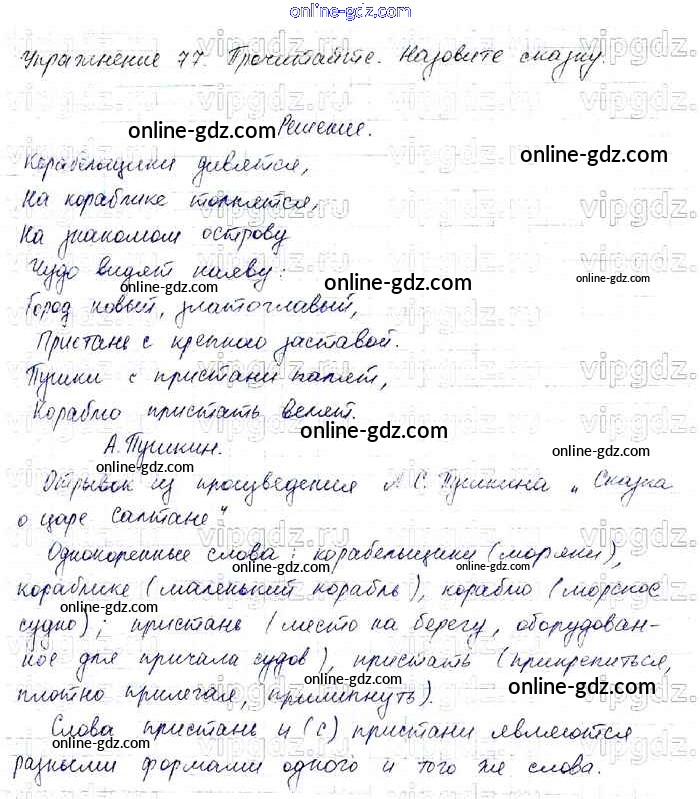 online-gdz.com
Упражнение 77. Прочитайте. Назовите сказку.
vipgdz.ru
Решение.
online-gdz.com
online-gdz.com
Корабельщики дивятся,
На кораблике толпятся,
На знакомом острову
Чудо видят наяву:
online-gdz.com
Город новый, златоглавый,
Пристань с крепкою заставой.
online-gdz.com
Пушки с пристани палят,
Кораблю пристать велят.
online-gdz.com
А. Пушкин.
online-gdz.com
online-gdz.com
Отрывок из произведения А.С. Пушкина „Сказка
о царе Салтане".
online-gdz.com
Однокоренные слова: корабельщики (моряки),
кораблике (маленький корабль), кораблю (морское
online-gdz.com
online-gdz.com
судно); пристань (место на берегу, оборудован-
ное для причала судов), пристать (прикрепиться,
плотно прилегая, прилипнуть).
online-gdz.com
Слова пристань и (с) пристани являются
online-gdz.com
online-gdz.com
разными формами одного и того же слова.